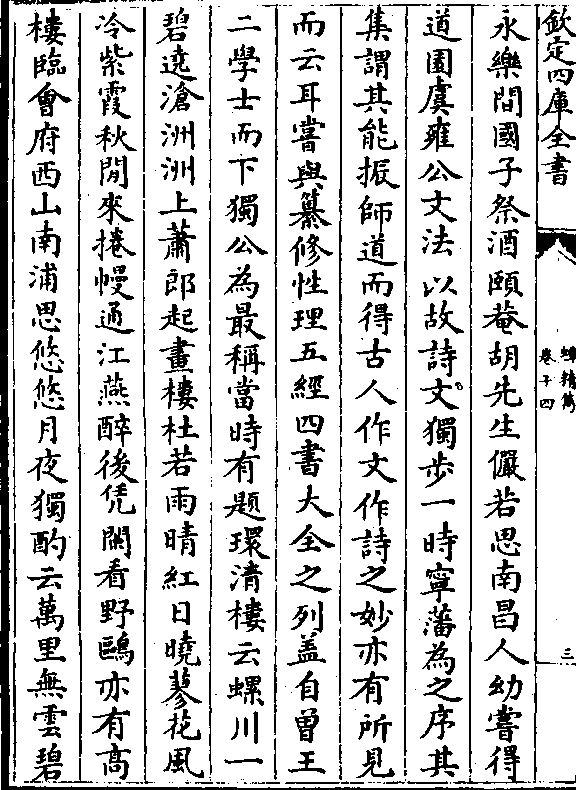 欽定四庫全書
蟫精雋
卷十四
三
永樂間國子祭酒頤菴胡先生儼若思南昌人幼嘗得
道園虞雍公文法以故詩文獨步一時寧藩為之序其
集謂其能振師道而得古人作文作詩之妙亦有所見
而云耳嘗與纂修性理五經四書大全之列盖自曾王
二學士而下獨公為最稱當時有題環清樓云螺川一
碧遶滄洲洲上蕭郎起畫樓杜若雨晴紅日曉蓼花風
冷紫霞秋閒來捲幔通江燕醉後凭闌看野鷗亦有髙
樓臨會府西山南浦思悠悠月夜獨酌云萬里無雲碧